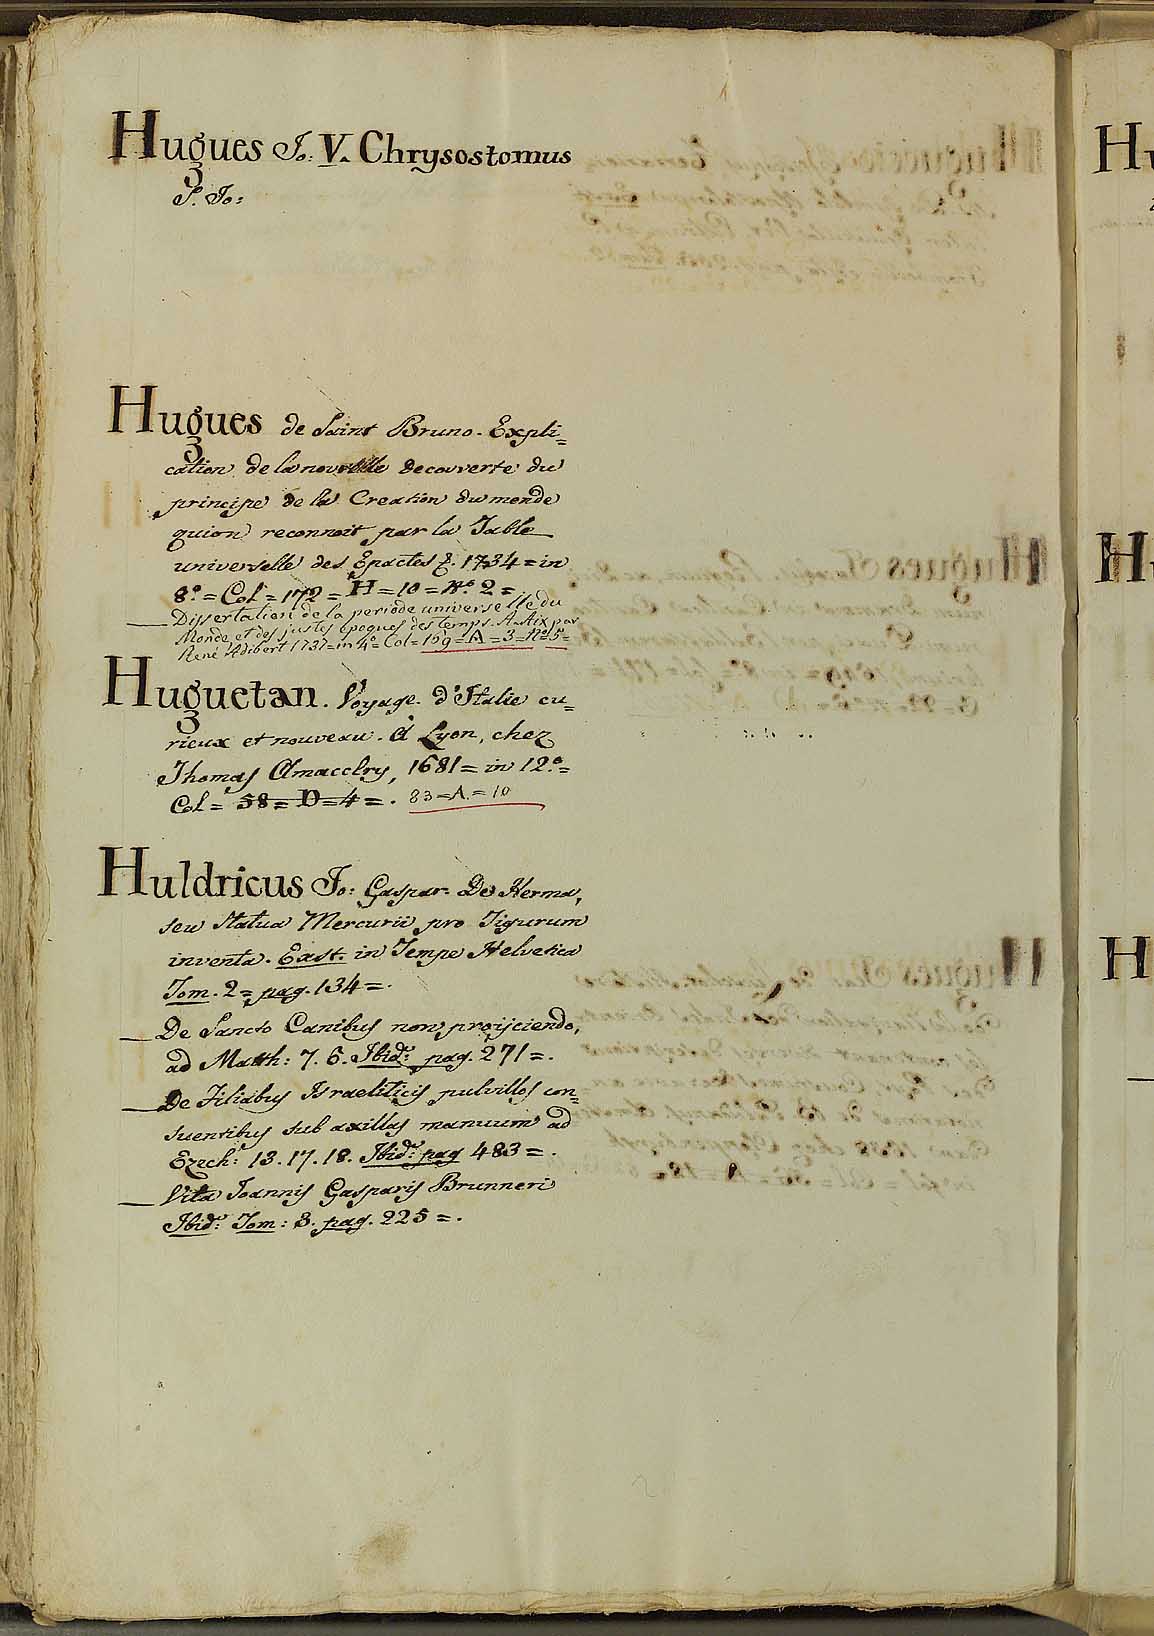 Hugues Jo: V. Chrysostomus
S. Jo:
Hugues de Saint Bruno. Expli=
cation de la nouvelle decouverte du
principe de la Creation du monde
quion reconnoit par la Table
universelle des Epactes &. 1734 = in
8.º = Col = 172 = H = 10 = Nº 2 =
Dissertation de la periode universelle du
Monde et des justes epoques des temps. A Aix par
René Adibert 1737 = in 4º = Col = 169 = A = 3 = Nº 5 =
Huguetan. Voyage d'Italie cu=
rieux et nouveau. A Lyon, chez
Thomas Amaulry, 1681 = in 12.º =
Col = 58 = D = 4 = . 83 = A. = 10
Huldricus Jo: Gaspar. De Herma,
seu Statua Mercurii pro Tigurum
inventa. Exst. in Tempe Helvetica
Tom. 2 = pag. 134 = .
De Sancto Canibus non projiciendo,
ad Matth: 7. 6. Ibid: pag. 271 = .
De Filiabus Israeliticis pulvillos con=
suentibus sub axillas manuum ad
Ezech: 13. 17. 18. Ibid: pag 483 = .
Vita Joannis Gasparis Brunneri
Ibid: Tom: 3. pag. 225 = .